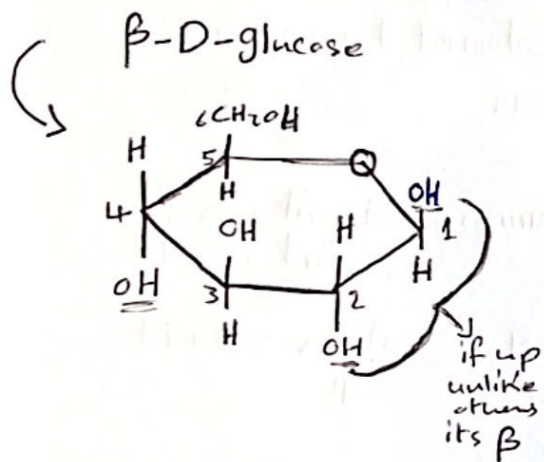 β-D-glucose
6CH2OH
H 5 O OH
4 H OH H 1
OH 3 2 H
H OH
if up
unlike
others
its β